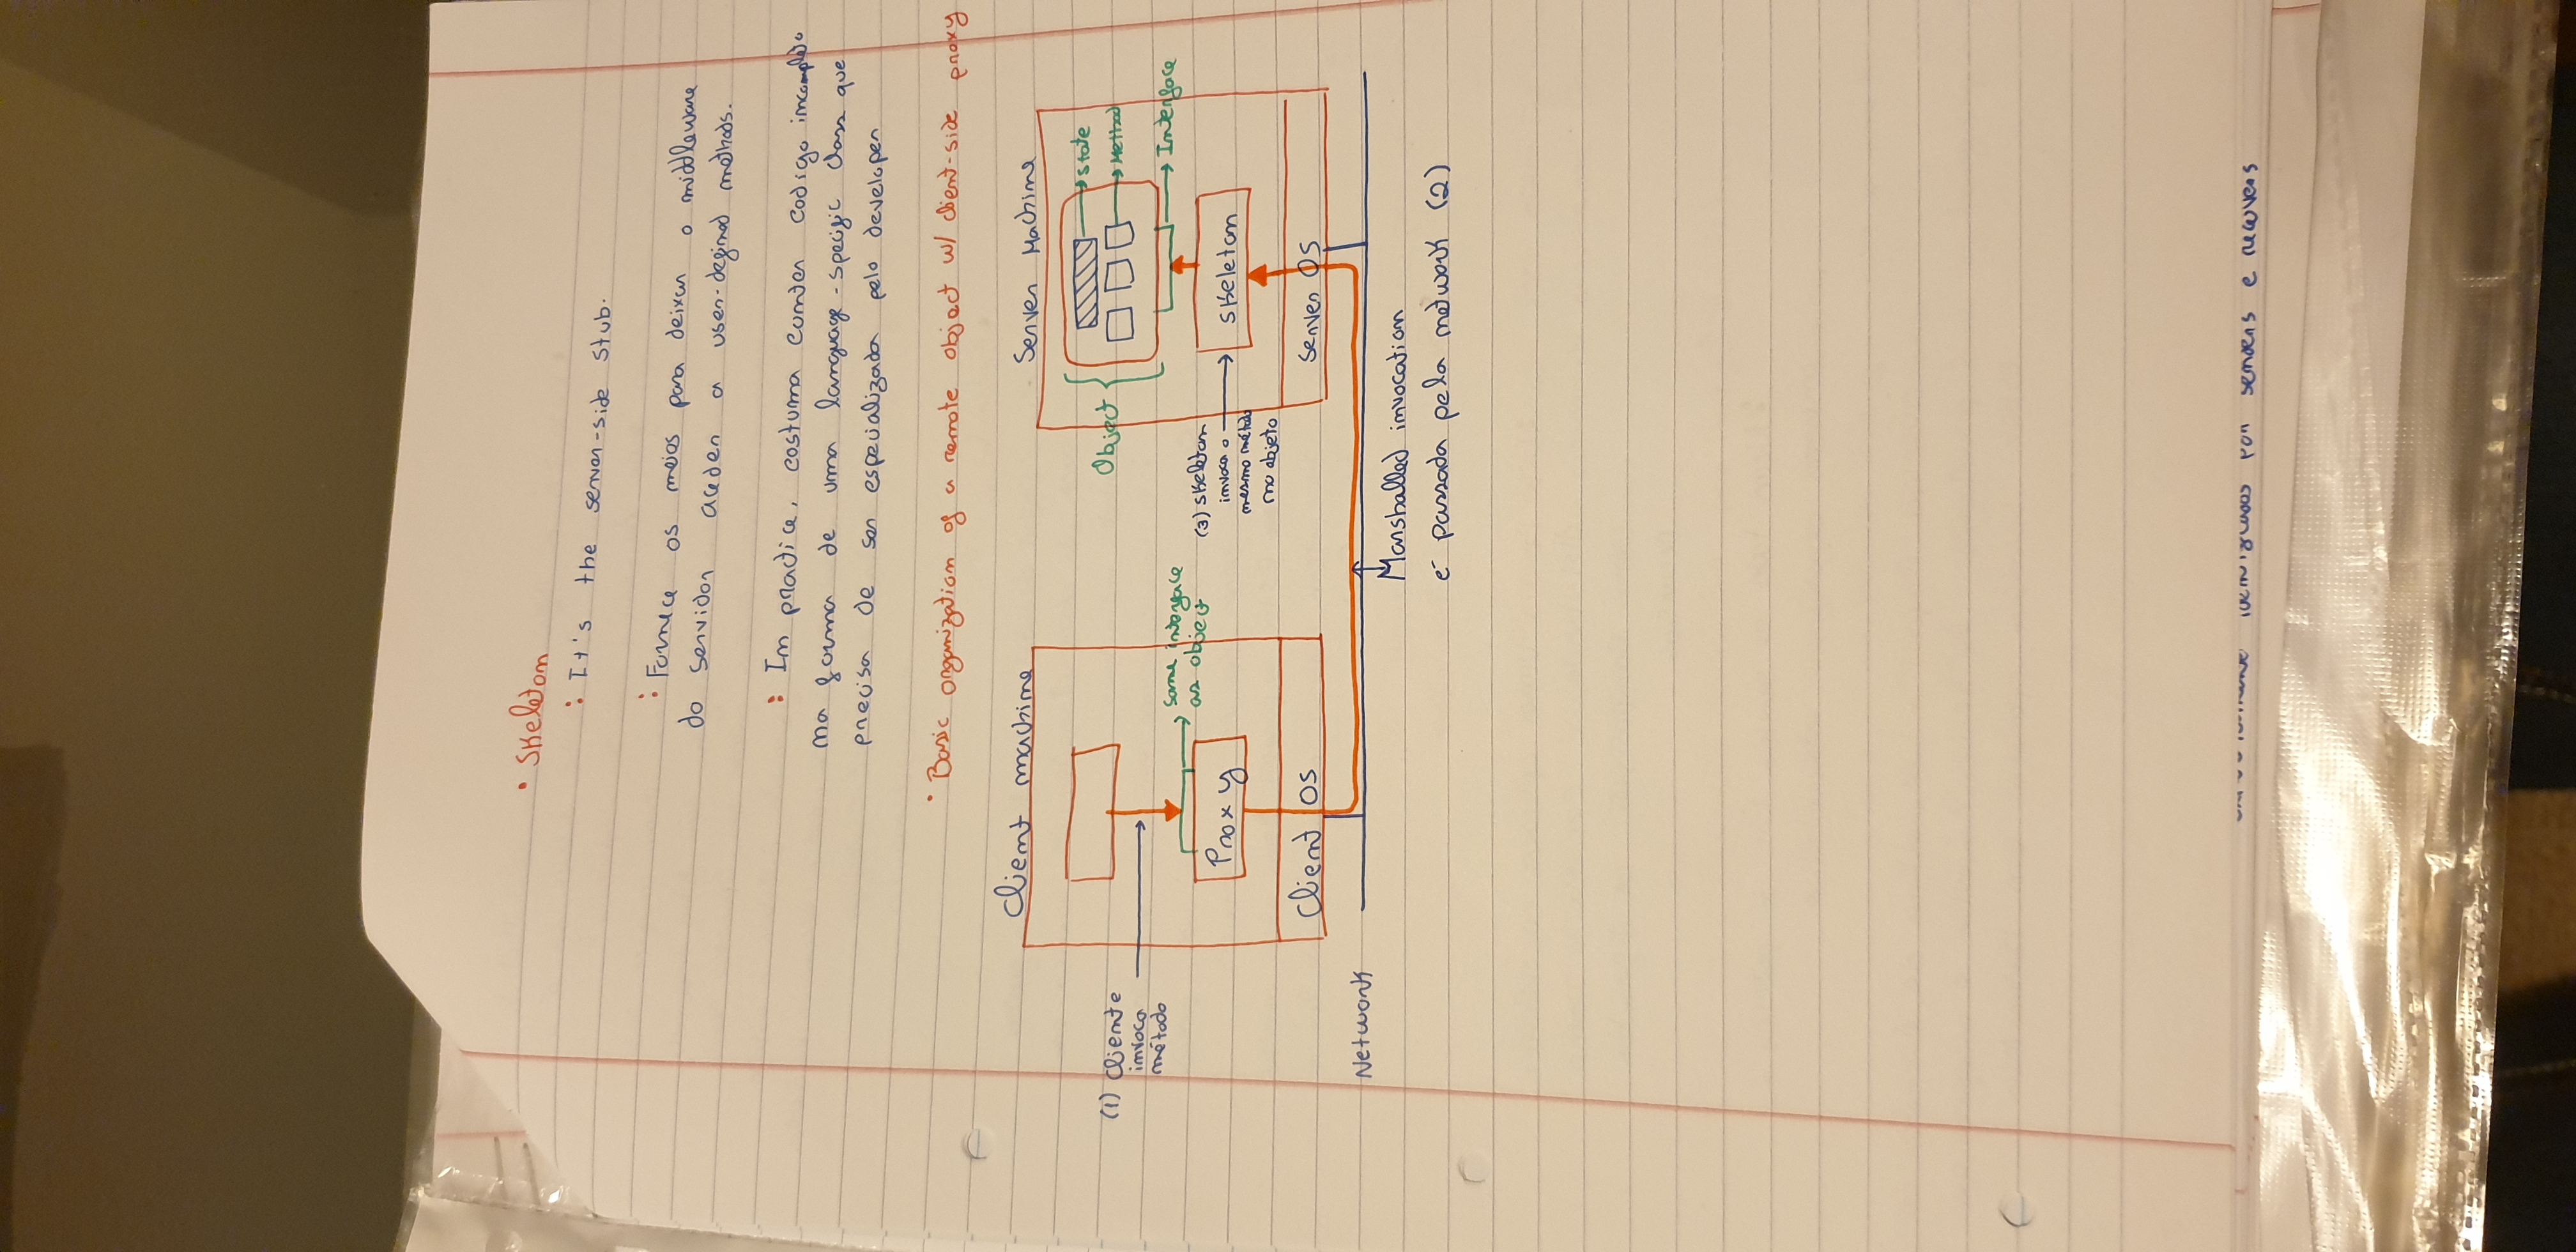 • Skeleton
: It's the server-side stub.
: Fornece os meios para deixar o middleware
do servidor aceder a user-defined methods.
: In practice, costuma conter codigo incompleto
na forma de uma language-specific class que
precisa de ser especializada pelo developer
• Basic organization of a remote object w/ client-side proxy
Client machine
Server Machine
(1) Cliente
invoca
método
Object
State
Method
Interface
same interface
as object
Proxy
(3) Skeleton
invoca o
mesmo método
no objeto
Skeleton
Client OS
Server OS
Network
Marshalled invocation
é passada pela network (2)
identificados por senders e receivers